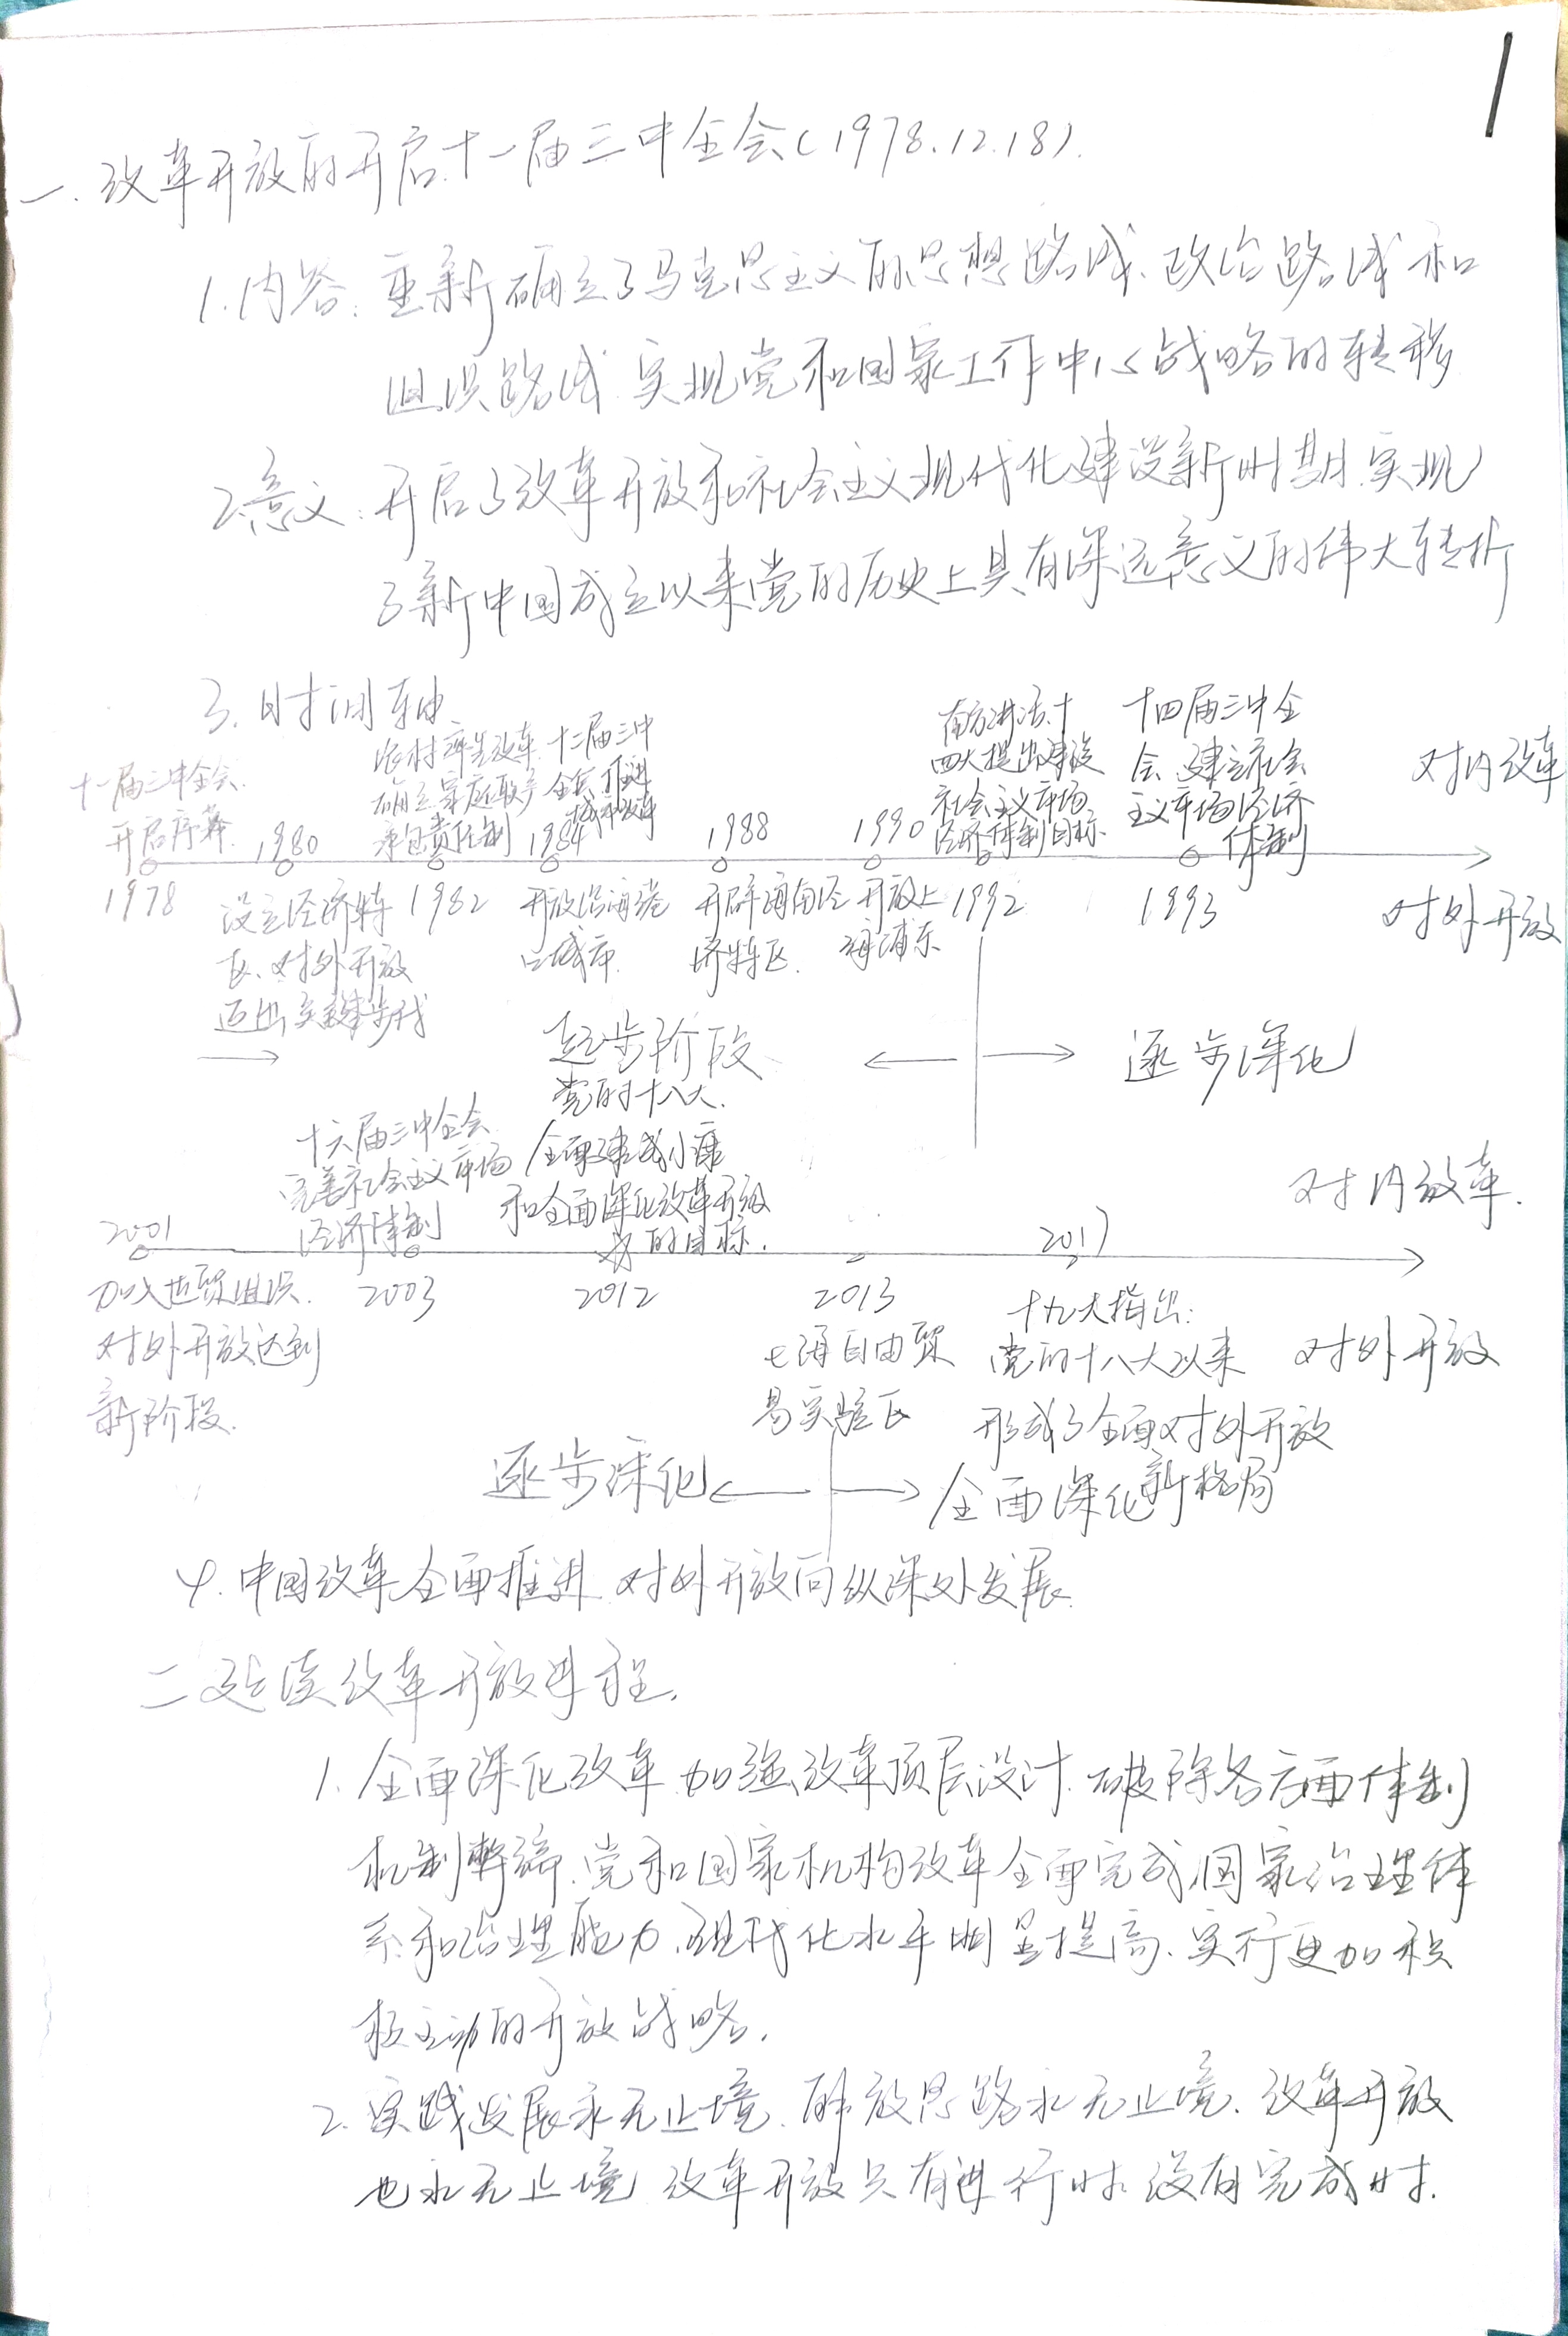 1
一.改革开放的开启.十一届三中全会(1978.12.18).
1.内容:重新确立了马克思主义的思想路线、政治路线和
组织路线.实现党和国家工作中心战略的转移
2.意义:开启了改革开放和社会主义现代化建设新时期.实现
了新中国成立以来党的历史上具有深远意义的伟大转折
3.时间轴
十一届三中全会.
开启序幕.
1978
1980
设立经济特
区、对外开放
迈出关键步伐
农村率先改革
确立家庭联产
承包责任制
1982
十二届三中
全会.推进
城市改革
1984
开放沿海港
口城市.
1988
开辟海南经
济特区.
1990
开放上
海浦东
南方讲话.十
四大提出建设
社会主义市场
经济体制目标
1992
十四届三中全
会.建立社会
主义市场经济
体制
1993
对内改革
对外开放
→ 起步阶段 ← → 逐步深化
2001
加入世贸组织.
对外开放达到
新阶段.
十六届三中全会
完善社会主义市场
经济体制
2003
党的十八大.
全面建成小康
和全面深化改革开放
的目标.
2012
2013
上海自由贸
易实验区
2017
十九大指出:
党的十八大以来
形成了全面对外开放
新格局
对内改革.
对外开放
逐步深化 ← → 全面深化
4.中国改革全面推进.对外开放向纵深处发展.
二 延续改革开放进程.
1.全面深化改革.加强改革顶层设计.破除各方面体制
机制弊端.党和国家机构改革全面完成,国家治理体
系和治理能力.现代化水平明显提高.实行更加积
极主动的开放战略.
2.实践发展永无止境.解放思路永无止境.改革开放
也永无止境.改革开放只有进行时.没有完成时.